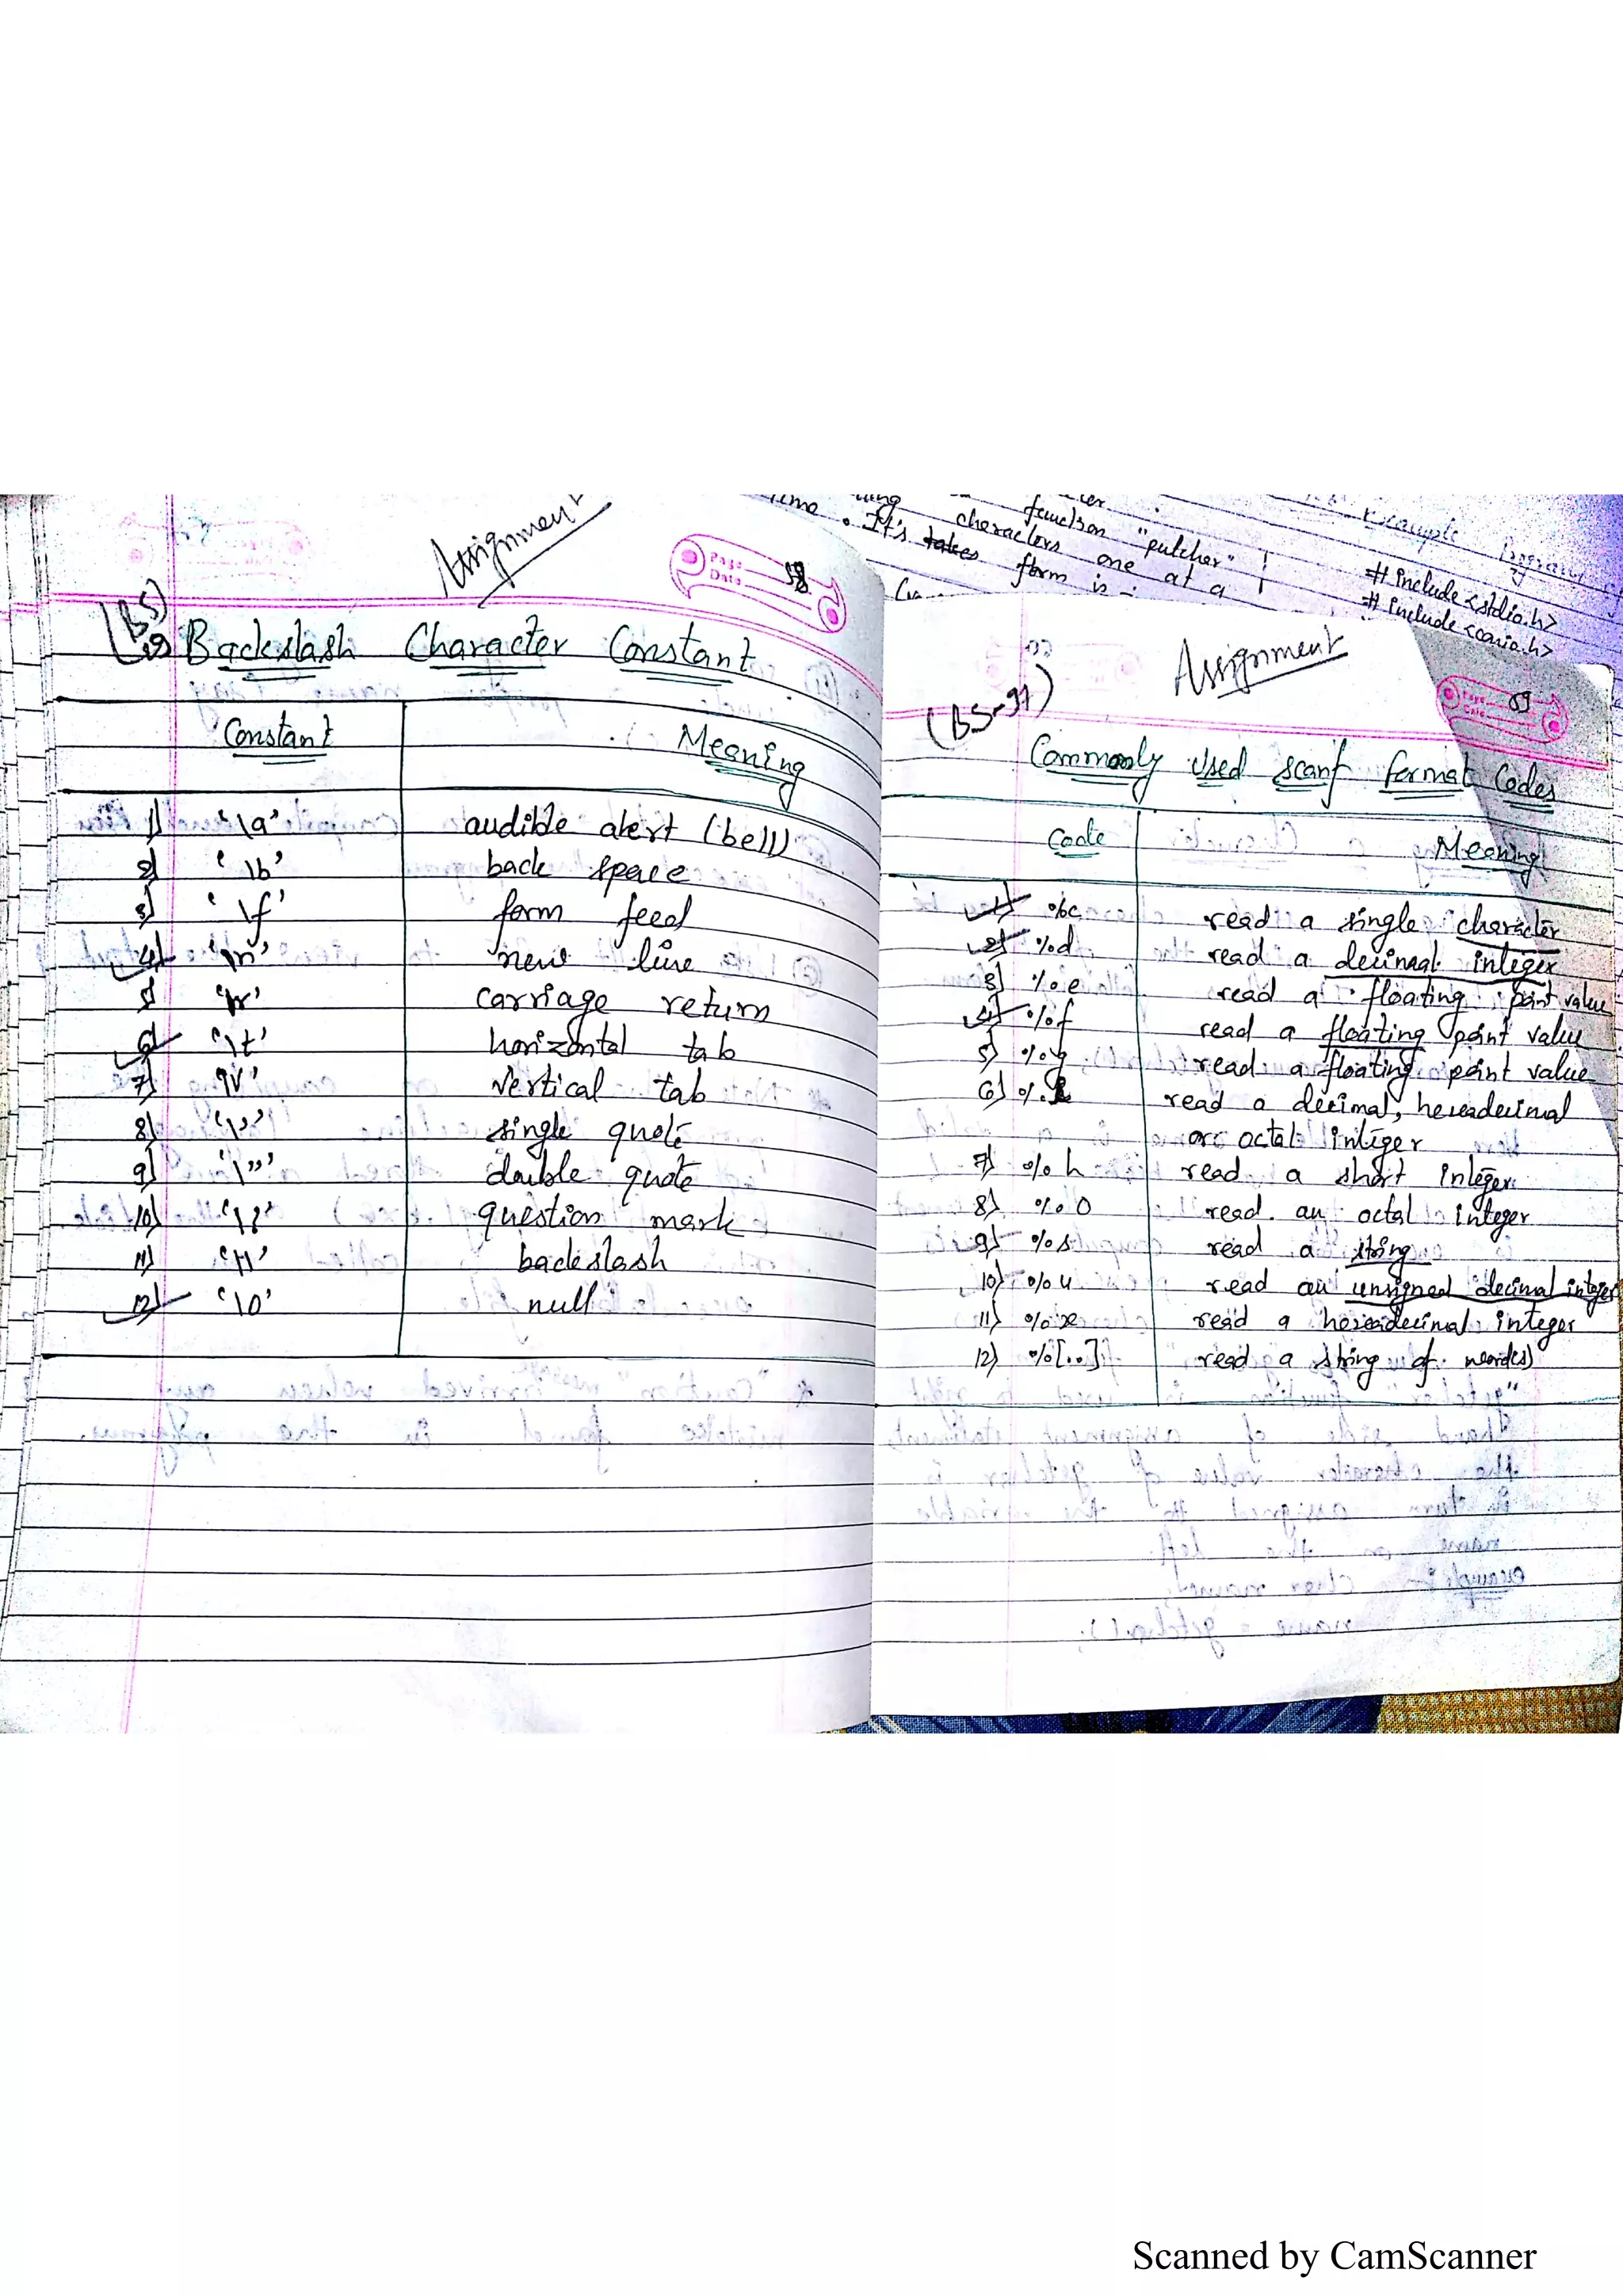 Assignment
Page 58
Date
(BS)
Backslash Character Constant
Constant Meaning
1) '\a' audible alert (bell)
2) '\b' back space
3) '\f' form feed
4) '\n' new line
5) '\r' carriage return
6) '\t' horizontal tab
7) '\v' vertical tab
8) '\'' single quote
9) '\"' double quote
10) '\?' question mark
11) '\\' backslash
12) '\0' null
function "putcher"
characters one at a
time. It's takes form is
Example
#include<stdio.h>
#include<conio.h>
Assignment
Page 59
Date
Commonly Used scanf format Codes
Code Meaning
1) %c read a single character
2) %d read a decimal integer
3) %e read a floating point value
4) %f read a floating point value
5) %g read a floating point value
6) %i read a decimal, hexadecimal
or octal integer
7) %h read a short integer
8) %o read an octal integer
9) %s read a string
10) %u read an unsigned decimal integer
11) %x read a hexadecimal integer
12) %[..] read a string of word(s)
Scanned by CamScanner